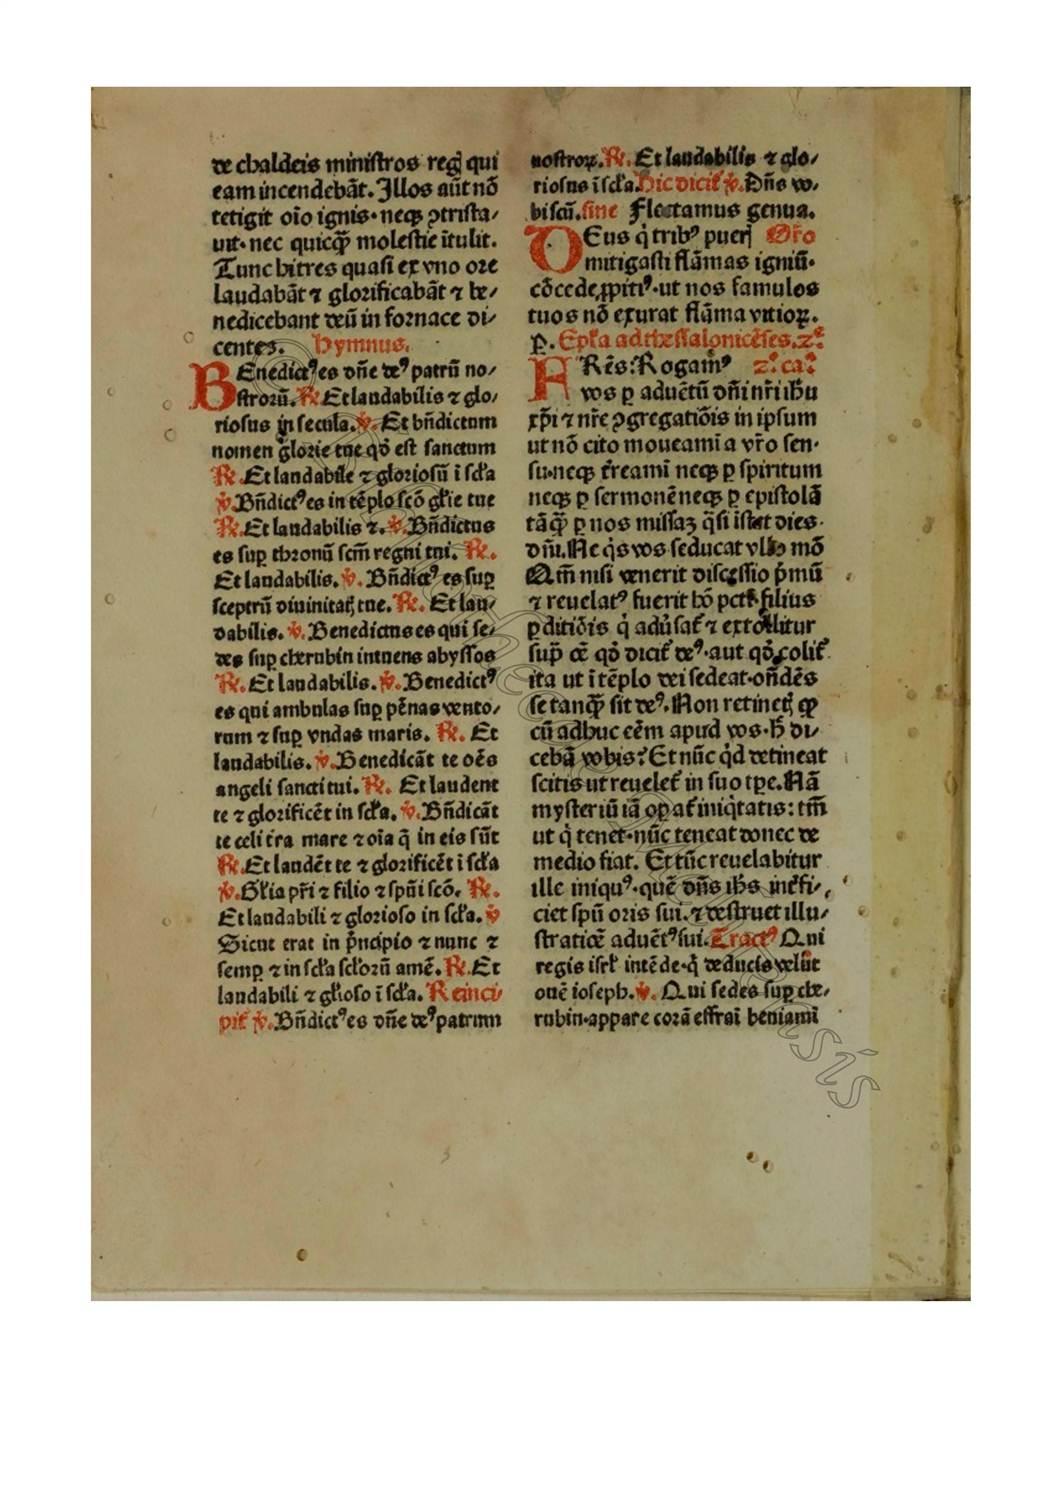 de chaldeis miniſtros regꝭ qui
eam incendebāt. Illos aūt nō
tetigit oīo ignis· neqꝫ ꝯtriſta/
uit· nec quicqꝫ̄ moleſtie ītulit.
Tunc hi tres quaſi ex vno ore
laudabāt ⁊ glorificabāt ⁊ be/
nedicebant deū in fornace di/
centes. Hymnus.
BEnedictꝰ es dn̄e deꝰ patrū no/
ſtrorū. ℞. Et laudabilis ⁊ glo/
rioſus in ſecula. ℣. Et bn̄dictum
nomen glorie tue qd̄ eſt ſanctum
℞. Et laudabile ⁊ glorioſū ī ſcl̄a
℣. Bn̄dictꝰ es in tēplo ſcō gl̄ie tue
℞. Et laudabilis ⁊. ℣. Bn̄dictus
es ſuꝑ thronū ſcm̄ regni tui. ℞.
Et laudabilis. ℣. Bn̄dictꝰ es ſuꝑ
ſceptrū diuinitatꝭ tue. ℞. Et lau/
dabilis. ℣. Benedictus es qui ſe/
des ſuꝑ cherubin intuens abyſſos
℞. Et laudabilis. ℣. Benedictꝰ
es qui ambulas ſuꝑ pēnas vento/
rum ⁊ ſuꝑ vndas maris. ℞. Et
laudabilis. ℣. Benedicāt te oēs
angeli ſancti tui. ℞. Et laudent
te ⁊ glorificēt in ſcl̄a. ℣. Bn̄dicāt
te celi t̄ra mare ⁊ oīa q̄ in eis ſūt
℞. Et laudēt te ⁊ glorificēt ī ſcl̄a
℣. Gl̄ia pr̄i ⁊ filio ⁊ ſpūi ſcō. ℞.
Et laudabili ⁊ glorioſo in ſcl̄a. ℣
Sicut erat in p̄ncipio ⁊ nunc ⁊
ſemꝑ ⁊ in ſcl̄a ſcl̄orū amē. ℞. Et
laudabili ⁊ gl̄ioſo ī ſcl̄a. Reinci/
pit̄ ℣. Bn̄dictꝰ es dn̄e deꝰ patrum
noſtroꝝ. ℞. Et laudabilis ⁊ glo/
rioſus ī ſcl̄a. Hic dicit̄ ℣. Dn̄s vo/
biſcū. ſine Flectamus genua.
DEus q̇ tribꝰ puerꝭ Or̄o
mitigaſti flāmas igniū·
cōcede ꝓpitiꝰ· ut nos famulos
tuos nō exurat flāma vitioꝝ.
ꝑ. Epl̄a ad theſſalonicēſes. 2.ᵉ
FRēs: Rogamꝰ 2.ᵒ ca.ᵒ
vos ꝑ aduētū dn̄i nr̄i ih̄u
xp̄i ⁊ nr̄e ꝯgregatiōis in ipſum
ut nō cito moueamī a vr̄o ſen·
ſu· neqꝫ t̄reamī neqꝫ ꝑ ſpiritum
neqꝫ ꝑ ſermonē neqꝫ ꝑ epiſtolā
tāqꝫ̄ ꝑ nos miſſaꝫ q̄ſi iſtet dies·
dn̄i. Ne q̇s vos ſeducat vllo mō
Qm̄ niſi venerit diſceſſio p̄mū
⁊ reuelatꝰ fuerit hō pctī filius
ꝑditiōis q̇ aduſat̄ ⁊ extollitur
ſupͣ oē qd̄ dicit̄ deꝰ· aut qd̄ colit̄
ita ut ī tēplo dei ſedeat· oñdēs
ſe tanqꝫ̄ ſit deꝰ. Non retinetꝭ qꝫ
cū adhuc eēm apud vos· h̄ di/
cebā vobis? Et nūc q̇d detineat
ſcitis ut reuelet̄ in ſuo tꝑe. Nā
myſteriū iā oꝑat̄ iniq̇tatis: tm̄
ut q̇ tenet· nūc teneat donec de
medio fiat. Et tūc reuelabitur
ille iniquꝰ· quē dn̄s ih̄s int̄fi/
ciet ſpū oris ſui. ⁊ deſtruet illu/
ſtratiōe aduētꝰ ſui. Tractꝰ Qui
regis iſrl̄ intēde· q̇ deducis velut
ouē ioſeph. ℣. Qui ſedes ſuꝑ che/
rubin· appare corā effraī beniamī